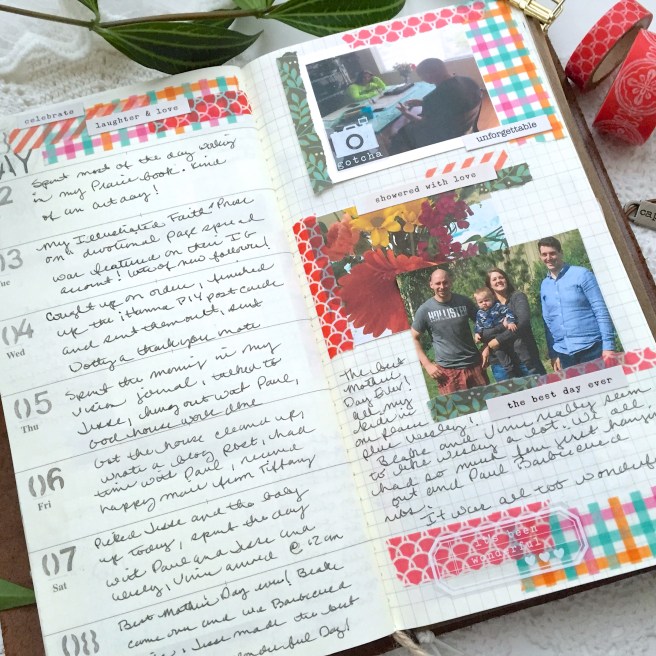 celebrate
laughter & love
AY
2
Spent most of the day working
in my Praise book. Kind
of an art day!
03
my Illustrated Faith Praise
on a devotional page spread
was featured on their IG
account! Lots of new followers!
04
Wed
Caught up on orders, finished
up the iHanna DIY postcards
and sent them out, sent
a thank you note
05
Thu
Spent the morning in my
vision journal, talked to
Jesse, hung out with Paul,
got house work done
06
Fri
Got the house cleaned up,
wrote a blog post, had
time with Paul, received
happy mail from Tiffany
07
Sat
Picked Jesse and the baby
up today, spent the day
with Paul and Jesse and
Wesley, Vinu arrived @ 12 am
08
Best Mother's Day ever! Blake
came over and we Barbecued
Jesse made the best
wonderful Day!
gotcha
unforgettable
showered with love
HOLLISTER
the best day ever
The best
Mother's
Day Ever!
all my
kids in
one place
plus Wesley!
Blake and Vinu really seem
to like Wesley a lot. We all
had so much fun just hangin
out and Paul Barbecued
It was all too wonderful
it's been
wonderful
cap